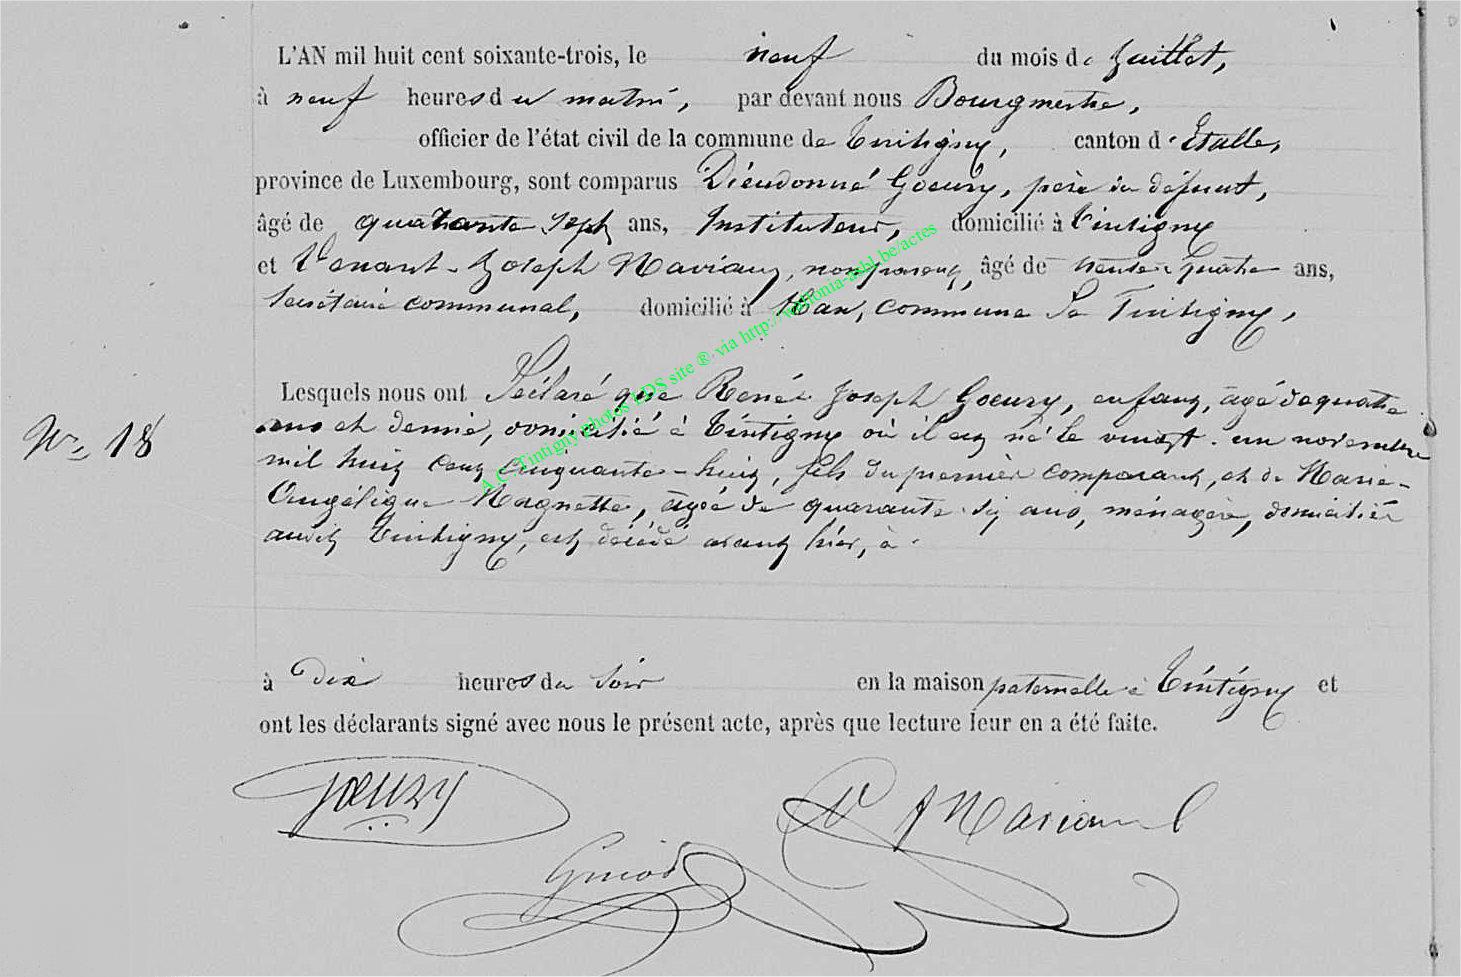 L'AN mil huit cent soixante-trois, le neuf du mois de Juillet,
à neuf heures du matin, par devant nous Bourgmestre,
officier de l'état civil de la commune de Tintigny, canton d'Etalle,
province de Luxembourg, sont comparus Dieudonné Goeury, père du défunt,
âgé de quarante sept ans, Instituteur, domicilié à Tintigny
et Venant-Joseph Naviaux, non parent, âgé de trente-quatre ans,
Secrétaire communal, domicilié à Han, commune de Tintigny,
Lesquels nous ont déclaré que René Joseph Goeury, enfant, âgé de quatre
N° 18
ans et demi, domicilié à Tintigny où il est né le vingt-un novembre
mil huit cent cinquante-huit, fils du premier comparant, et de Marie-
Angélique Magnette, âgée de quarante six ans, ménagère, domiciliée
audit Tintigny, est décédé avant hier, à
à dix heures du soir en la maison paternelle à Tintigny et
ont les déclarants signé avec nous le présent acte, après que lecture leur en a été faite.
Goeury
A.C. Tintigny photos LDS site ® via http://wallonia-asbl.be/actes